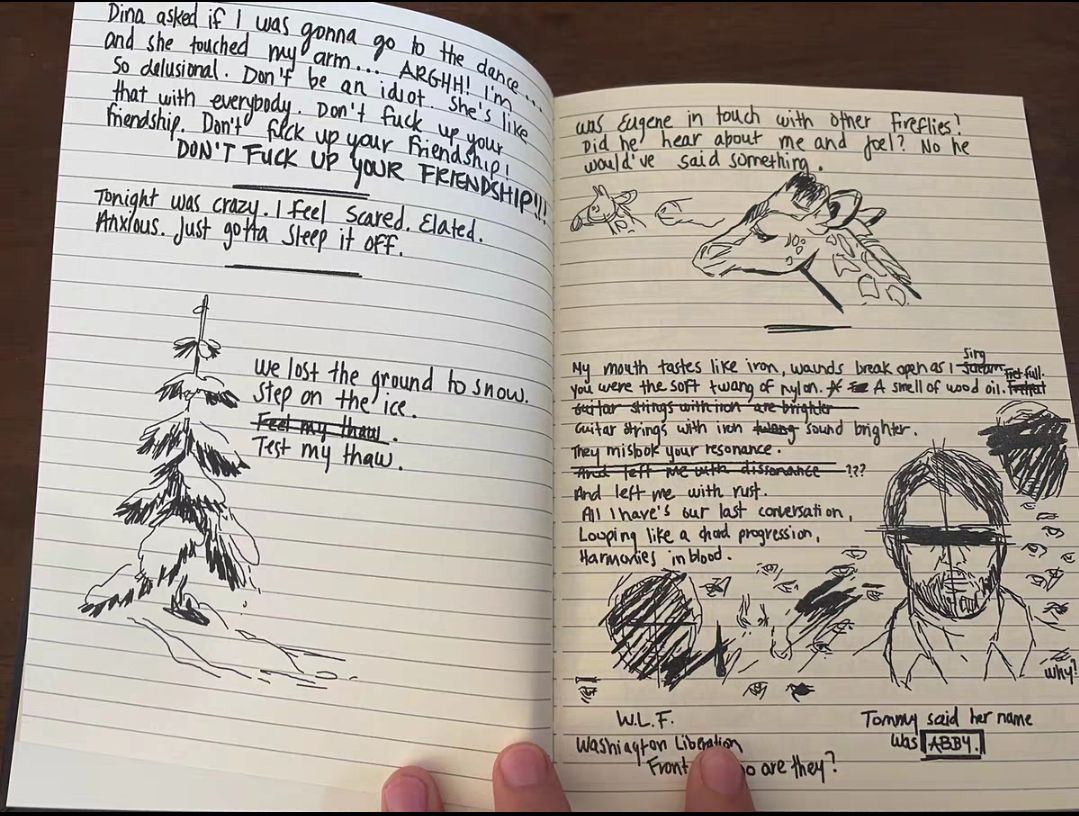 Dina asked if I was gonna go to the dance...
and she touched my arm... ARGHH! I'm
so delusional. Don't be an idiot. She's like
that with everybody. Don't fuck up your
friendship. Don't fuck up your friendship!
DON'T FUCK UP YOUR FRIENDSHIP!!!
Tonight was crazy. I feel scared. Elated.
Anxious. Just gotta sleep it off.
We lost the ground to snow.
Step on the ice.
Feel my thaw.
Test my thaw.
Was Eugene in touch with other fireflies?
Did he hear about me and Joel? No he
would've said something.
My mouth tastes like iron, wounds break open as I sing
You were the soft twang of nylon. A smell of wood oil.
Guitar strings with iron are brighter
Guitar strings with iron twang sound brighter.
They misbok your resonance.
And left me with dissonance ???
And left me with rust.
All I have's our last conversation,
Looping like a chord progression,
Harmonies in blood.
Why?
W.L.F.
Washington Liberation
Front o are they?
Tommy said her name
was ABBY.